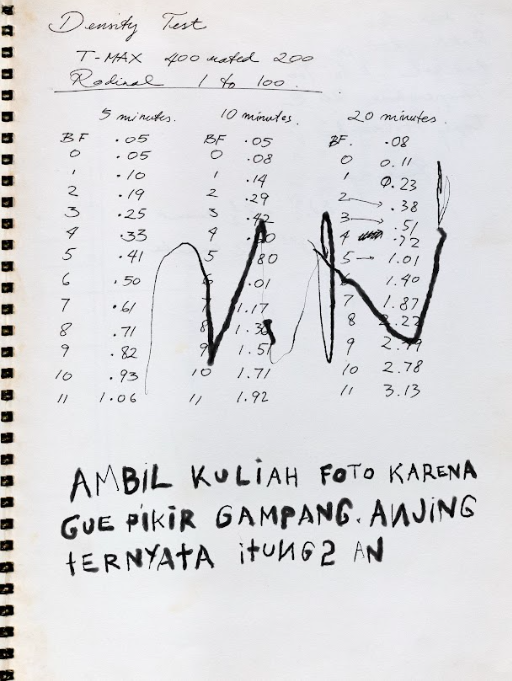 Density Test
T-MAX 400 rated 200
Rodinal 1 to 100
5 minutes. 10 minutes. 20 minutes.
BF .05 BF .05 BF. .08
0 .05 0 .08 0 0.11
1 .10 1 .14 1 0.23
2 .19 2 .29 2 → .38
3 .25 3 .42 3 → .51
4 .33 4 4 .72
5 .41 5 .80 5 → 1.01
6 .50 6 .01 1.40
7 .61 7 1.17 7 1.87
8 .71 8 1.36 8 2.22
9 .82 9 1.51 9
10 .93 10 1.71 10 2.78
11 1.06 11 1.92 11 3.13
AMBIL KULIAH FOTO KARENA
GUE PIKIR GAMPANG. ANJING
TERNYATA ITUNG2 AN